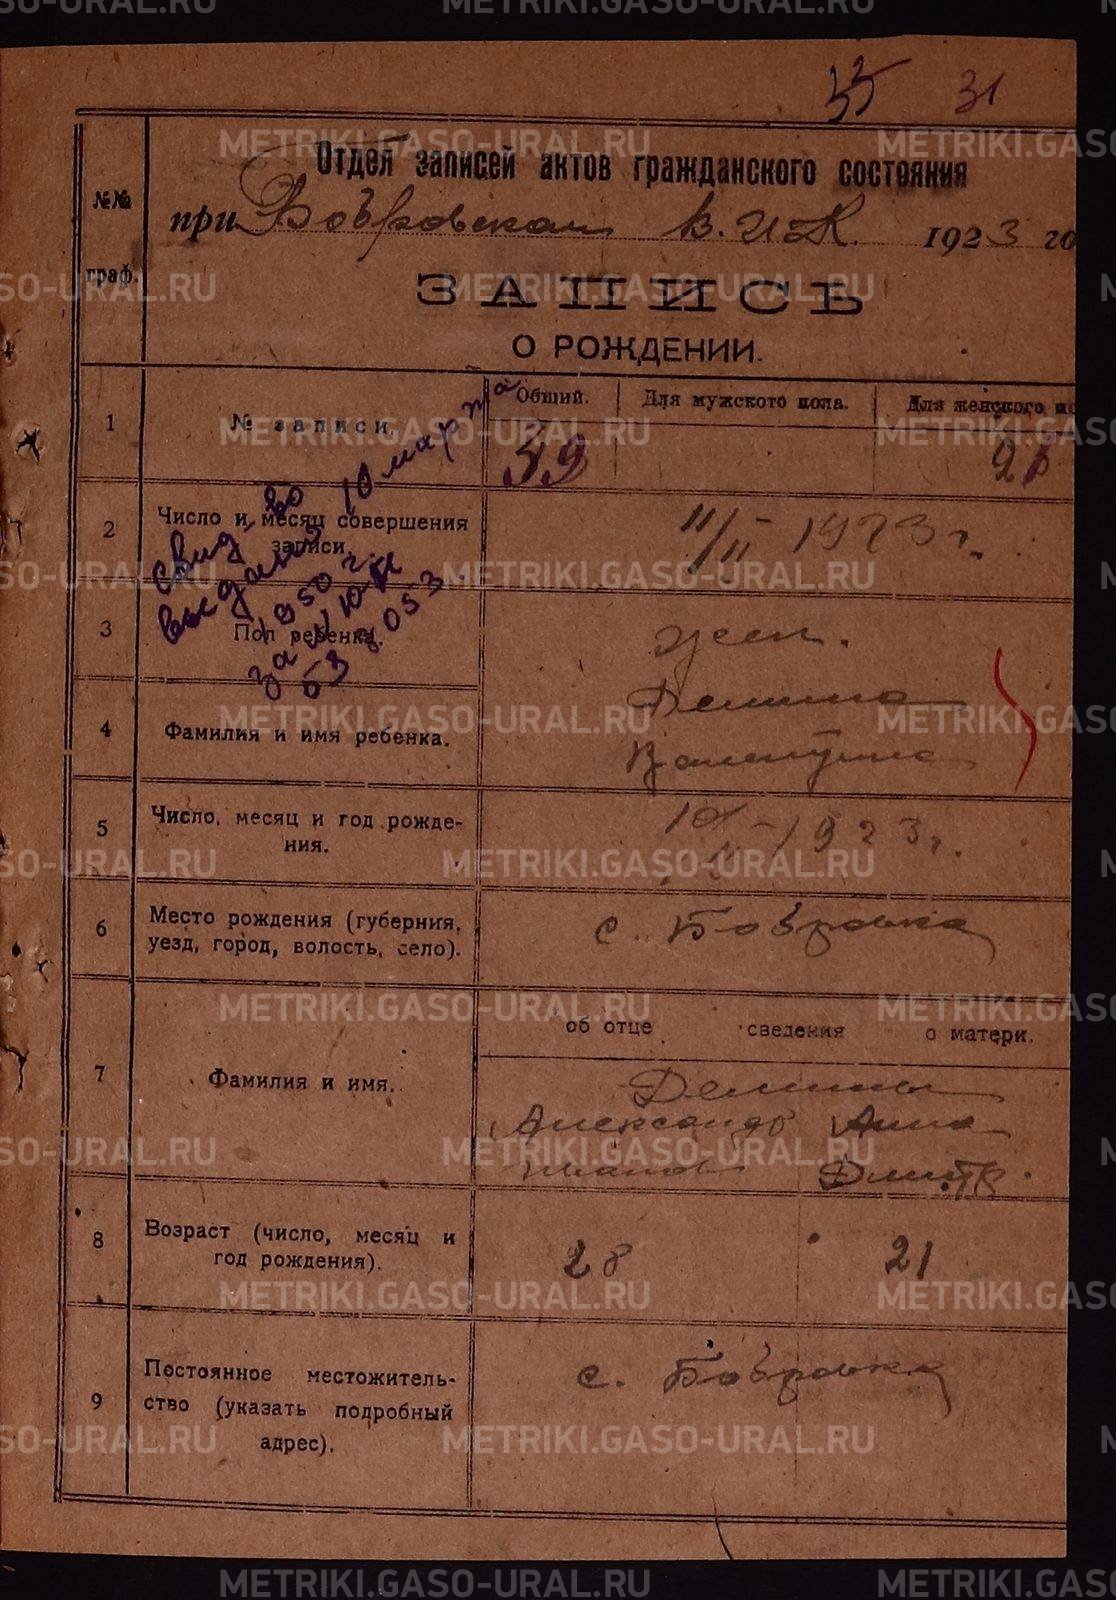 35 31
Отдел записей актов гражданского состояния
при Бобровском В.И.К. 1923 го
№№ граф.
ЗАПИСЬ
О РОЖДЕНИИ.
1 № записи. Общий. Для мужского пола. Для женского по
39 21
2 Число и месяц совершения записи. 11/II - 1923 г.
Свид-во
выдано 10 марта
1950 г.
за № ЮК
053
3 Пол ребенка. жен.
4 Фамилия и имя ребенка. Демина
Валентина
5 Число, месяц и год рожде-
ния. 10/II - 1923 г.
6 Место рождения (губерния,
уезд, город, волость, село). с. Бобровка
об отце сведения о матери.
7 Фамилия и имя. Демины
Александр Анна
Иванов Дмитр.
8 Возраст (число, месяц и
год рождения). 28 21
9 Постоянное местожитель-
ство (указать подробный
адрес). с. Бобровка
METRIKI.GASO-URAL.RU